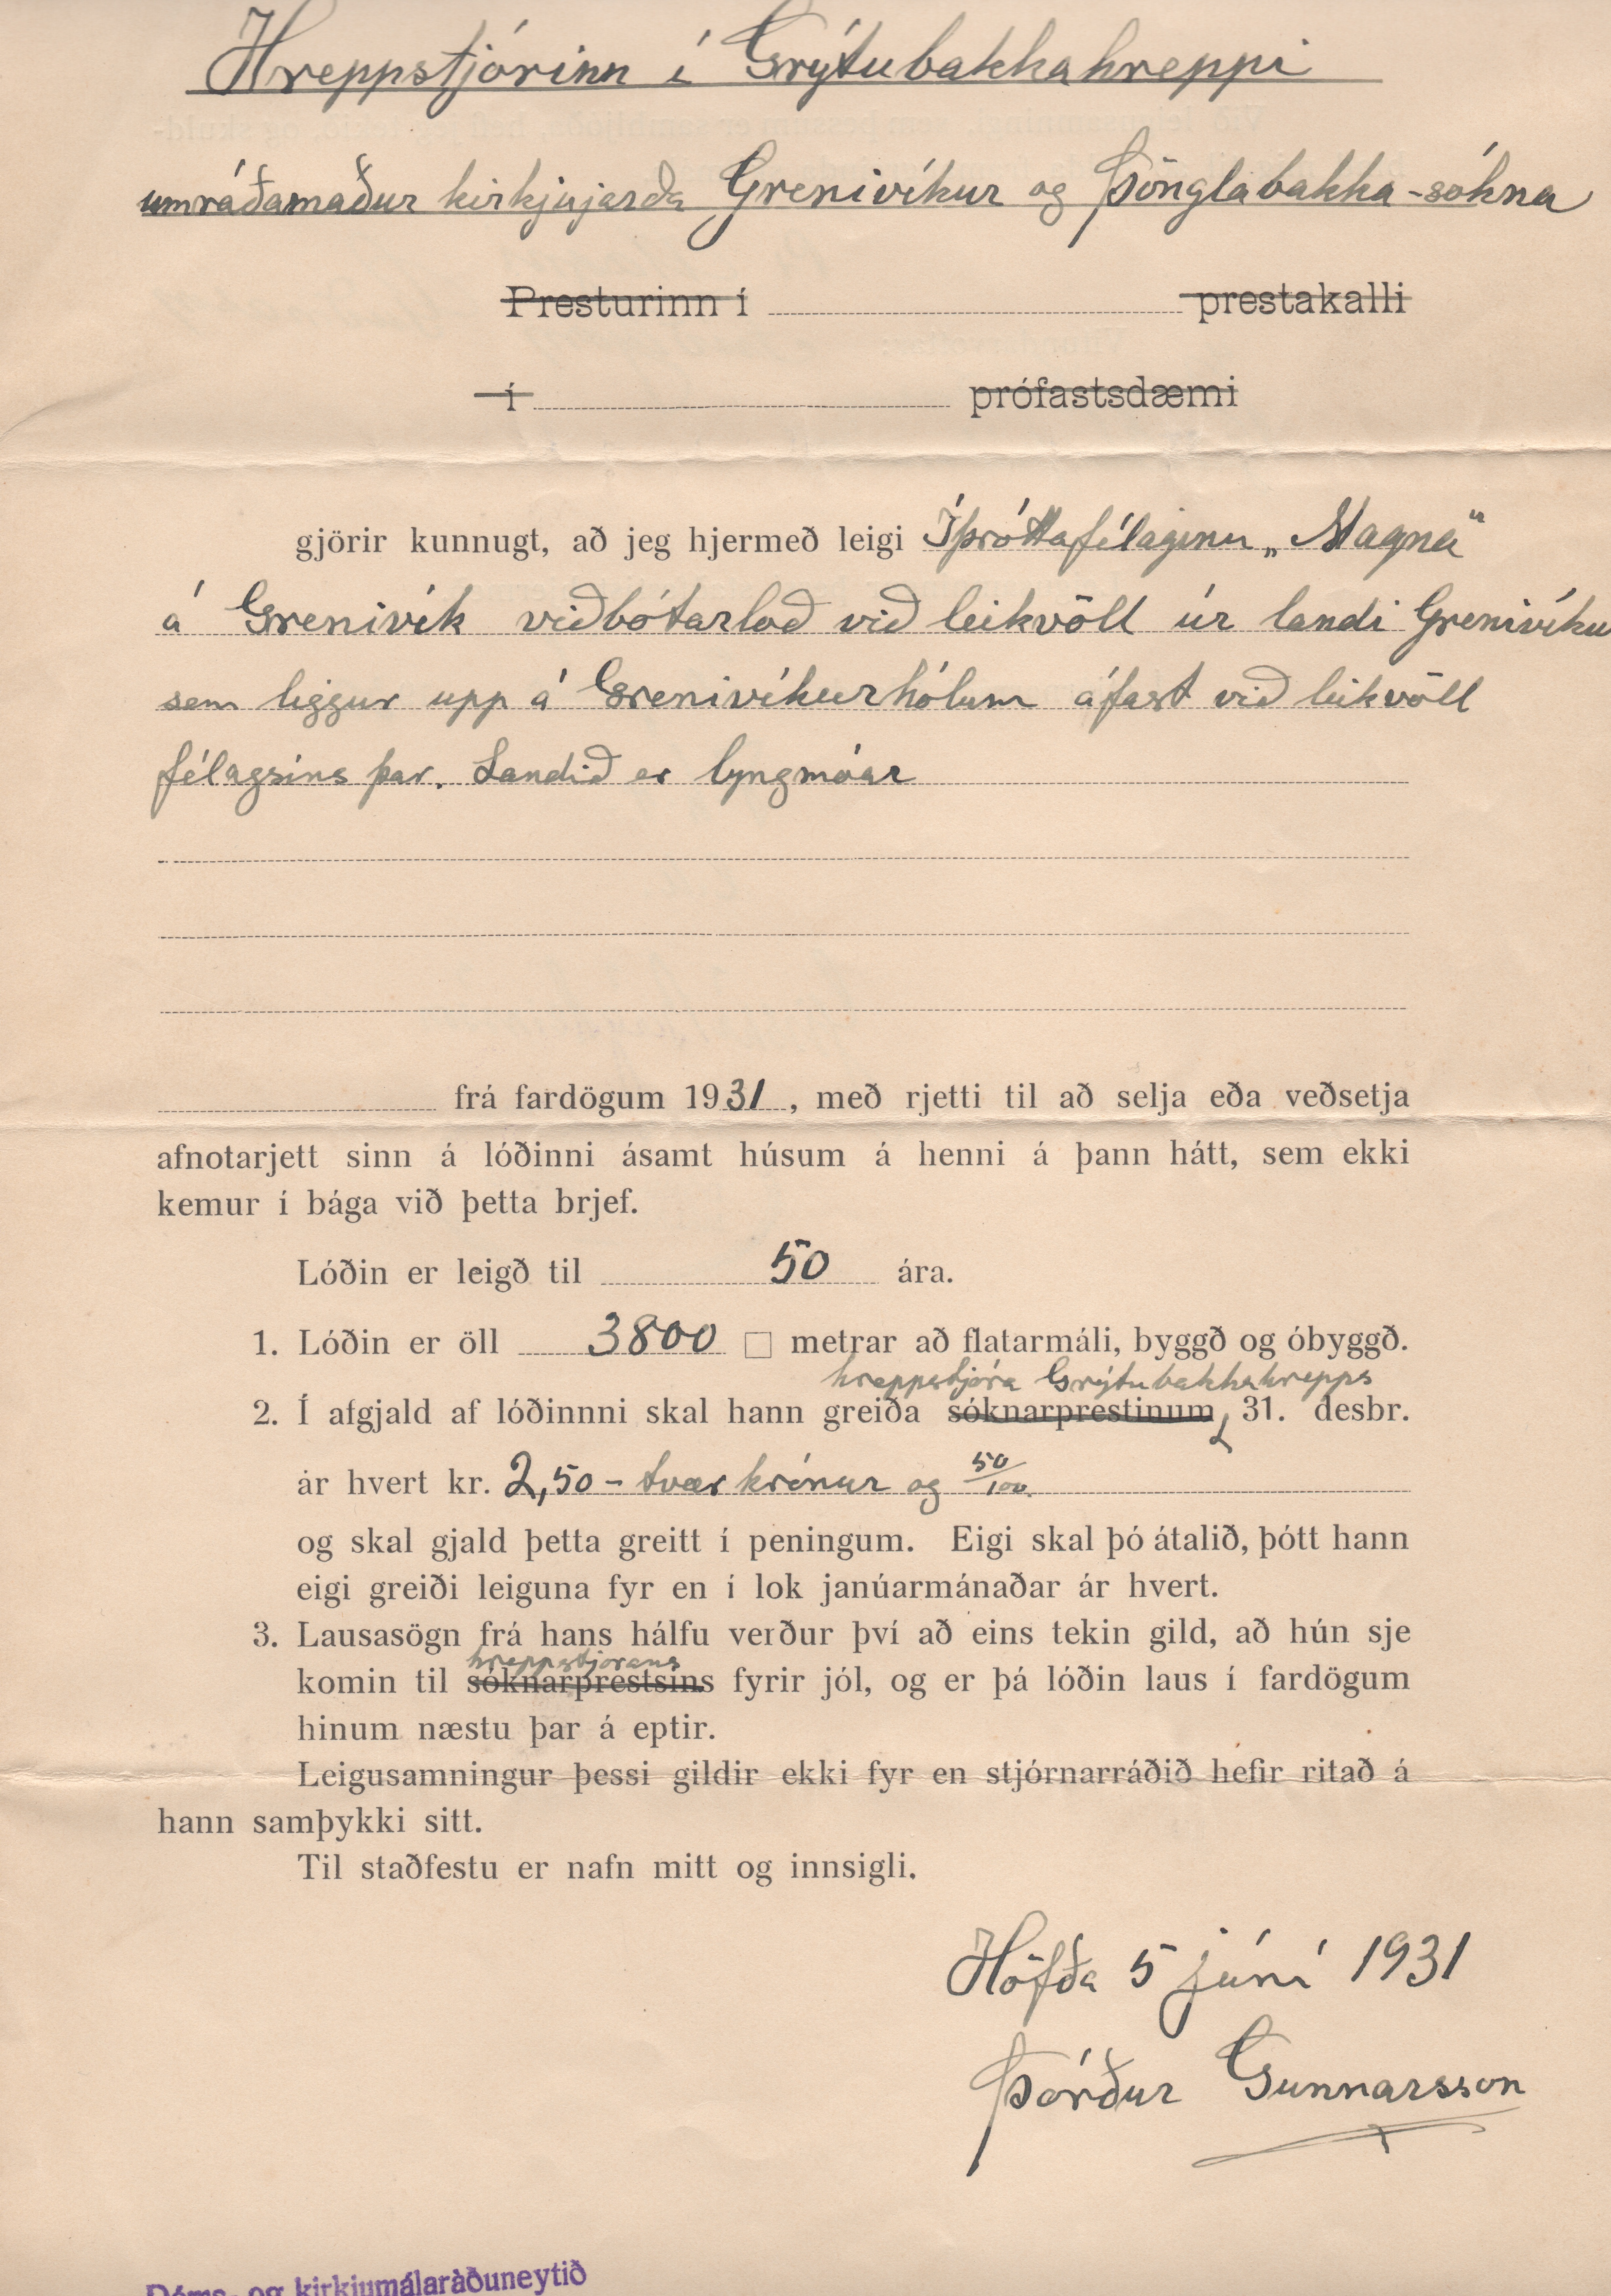 Hreppstjórinn í Grýtubakkahreppi
umráðamaður kirkjujarða Grenivíkur og Þönglabakka-sókna
Presturinn í prestakalli
í prófastsdæmi
gjörir kunnugt, að jeg hjermeð leigi Íþróttafélaginu „Magna"
á Grenivík viðbótarlóð við leikvöll úr landi Grenivíku
sem liggur upp á Grenivíkurhólum áfast við leikvöll
félagsins þar. Landið er lyngmóar
frá fardögum 1931, með rjetti til að selja eða veðsetja
afnotarjett sinn á lóðinni ásamt húsum á henni á þann hátt, sem ekki
kemur í bága við þetta brjef.
Lóðin er leigð til 50 ára.
1. Lóðin er öll 3800 □ metrar að flatarmáli, byggð og óbyggð.
hreppstjóra Grýtubakkahrepps
2. Í afgjald af lóðinnni skal hann greiða sóknarprestinum 31. desbr.
ár hvert kr. 2,50 - tvær krónur og 50/100
og skal gjald þetta greitt í peningum. Eigi skal þó átalið, þótt hann
eigi greiði leiguna fyr en í lok janúarmánaðar ár hvert.
3. Lausasögn frá hans hálfu verður því að eins tekin gild, að hún sje
hreppstjórans
komin til sóknarprestsins fyrir jól, og er þá lóðin laus í fardögum
hinum næstu þar á eptir.
Leigusamningur þessi gildir ekki fyr en stjórnarráðið hefir ritað á
hann samþykki sitt.
Til staðfestu er nafn mitt og innsigli.
Höfða 5 júní 1931
Þórður Gunnarsson
Dóms- og kirkjumálaráðuneytið